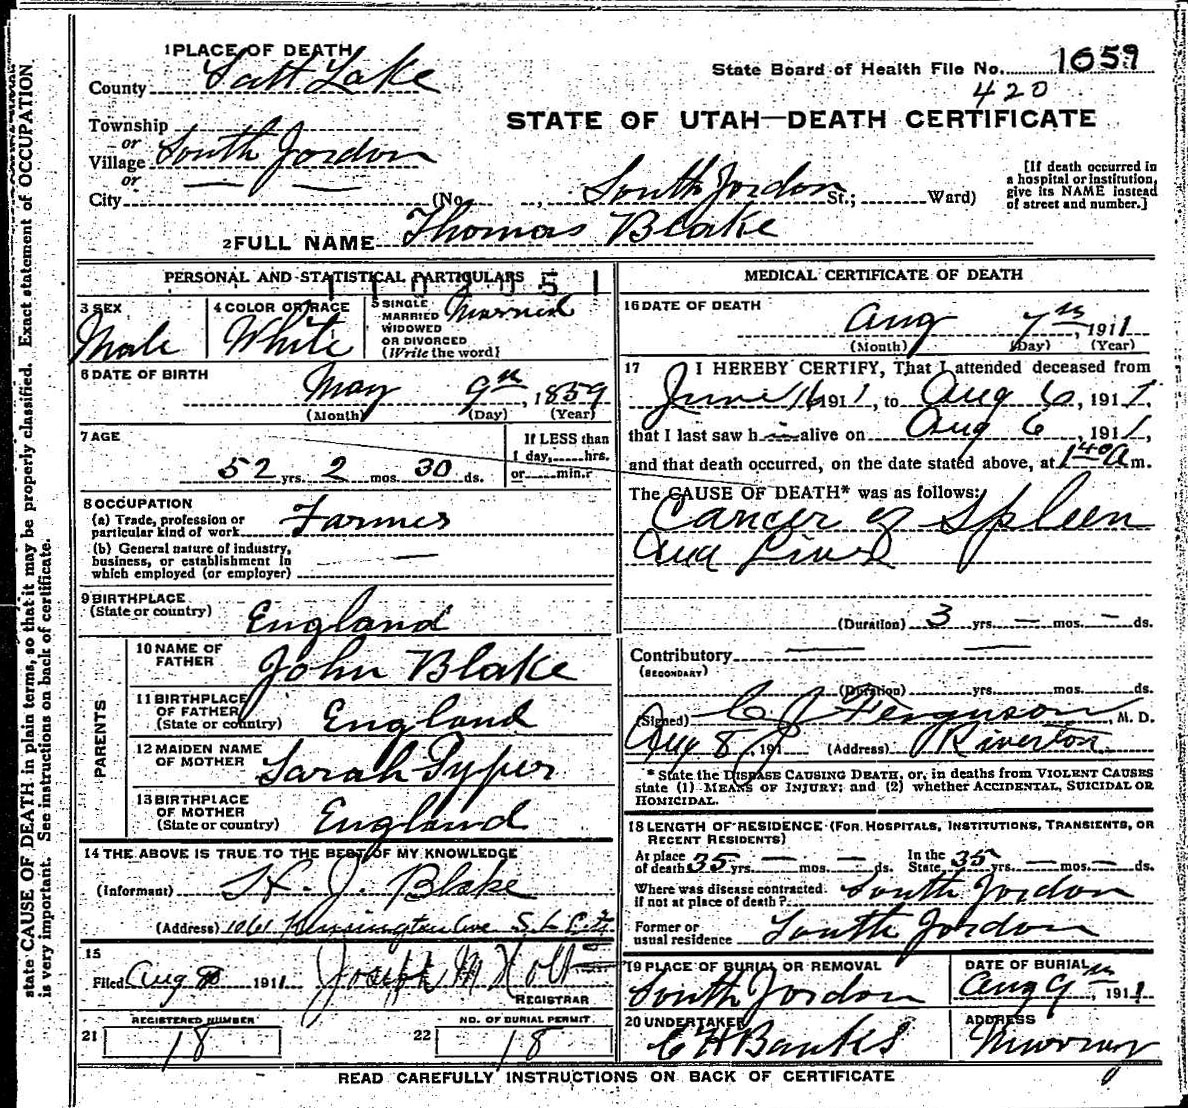 1 PLACE OF DEATH
County Salt Lake
State Board of Health File No. 1659
420
STATE OF UTAH—DEATH CERTIFICATE
Township
or
Village South Jordon
or
City — —
(No. , South Jordon St.; Ward)
[If death occurred in
a hospital or institution,
give its NAME instead
of street and number.]
2 FULL NAME Thomas Blake
PERSONAL AND STATISTICAL PARTICULARS
3 SEX
Male
4 COLOR OR RACE
White
5 SINGLE
MARRIED
WIDOWED
OR DIVORCED
(Write the word)
Married
6 DATE OF BIRTH
May 9th, 1859
(Month) (Day) (Year)
7 AGE
52 yrs. 2 mos. 30 ds.
If LESS than
1 day, hrs.
or min.?
8 OCCUPATION
(a) Trade, profession or
particular kind of work Farmer
(b) General nature of industry,
business, or establishment in
which employed (or employer) —
9 BIRTHPLACE
(State or country) England
PARENTS
10 NAME OF
FATHER John Blake
11 BIRTHPLACE
OF FATHER
(State or country) England
12 MAIDEN NAME
OF MOTHER Sarah Pyper
13 BIRTHPLACE
OF MOTHER
(State or country) England
14 THE ABOVE IS TRUE TO THE BEST OF MY KNOWLEDGE
(Informant) H. J. Blake
(Address) 1061 Kensington Ave S. L. City
15
Filed Aug 1911 Joseph M Holt
REGISTRAR
REGISTERED NUMBER
21 18
NO. OF BURIAL PERMIT
22 18
MEDICAL CERTIFICATE OF DEATH
16 DATE OF DEATH
Aug 7th, 1911
(Month) (Day) (Year)
17 I HEREBY CERTIFY, That I attended deceased from
June 16 1911, to Aug 6, 1911,
that I last saw him alive on Aug 6, 1911,
and that death occurred, on the date stated above, at 1 40 A m.
The CAUSE OF DEATH* was as follows:
Cancer of Spleen
and Liver
(Duration) 3 yrs. — mos. — ds.
Contributory — —
(SECONDARY)
(Duration) yrs. mos. ds.
(Signed) C. J. Ferguson, M. D.
Aug 8, 191 (Address) Riverton
* State the DISEASE CAUSING DEATH, or, in deaths from VIOLENT CAUSES
state (1) MEANS OF INJURY; and (2) whether ACCIDENTAL, SUICIDAL OR
HOMICIDAL.
18 LENGTH OF RESIDENCE (FOR HOSPITALS, INSTITUTIONS, TRANSIENTS, OR
RECENT RESIDENTS)
At place
of death 35 yrs. — mos. — ds. In the
State 35 yrs. — mos. — ds.
Where was disease contracted
if not at place of death? South Jordon
Former or
usual residence South Jordon
19 PLACE OF BURIAL OR REMOVAL
South Jordon
DATE OF BURIAL
Aug 9th, 1911
20 UNDERTAKER
C H Banks
ADDRESS
Murray
READ CAREFULLY INSTRUCTIONS ON BACK OF CERTIFICATE
state CAUSE OF DEATH in plain terms, so that it may be properly classified. Exact statement of OCCUPATION
is very important. See instructions on back of certificate.